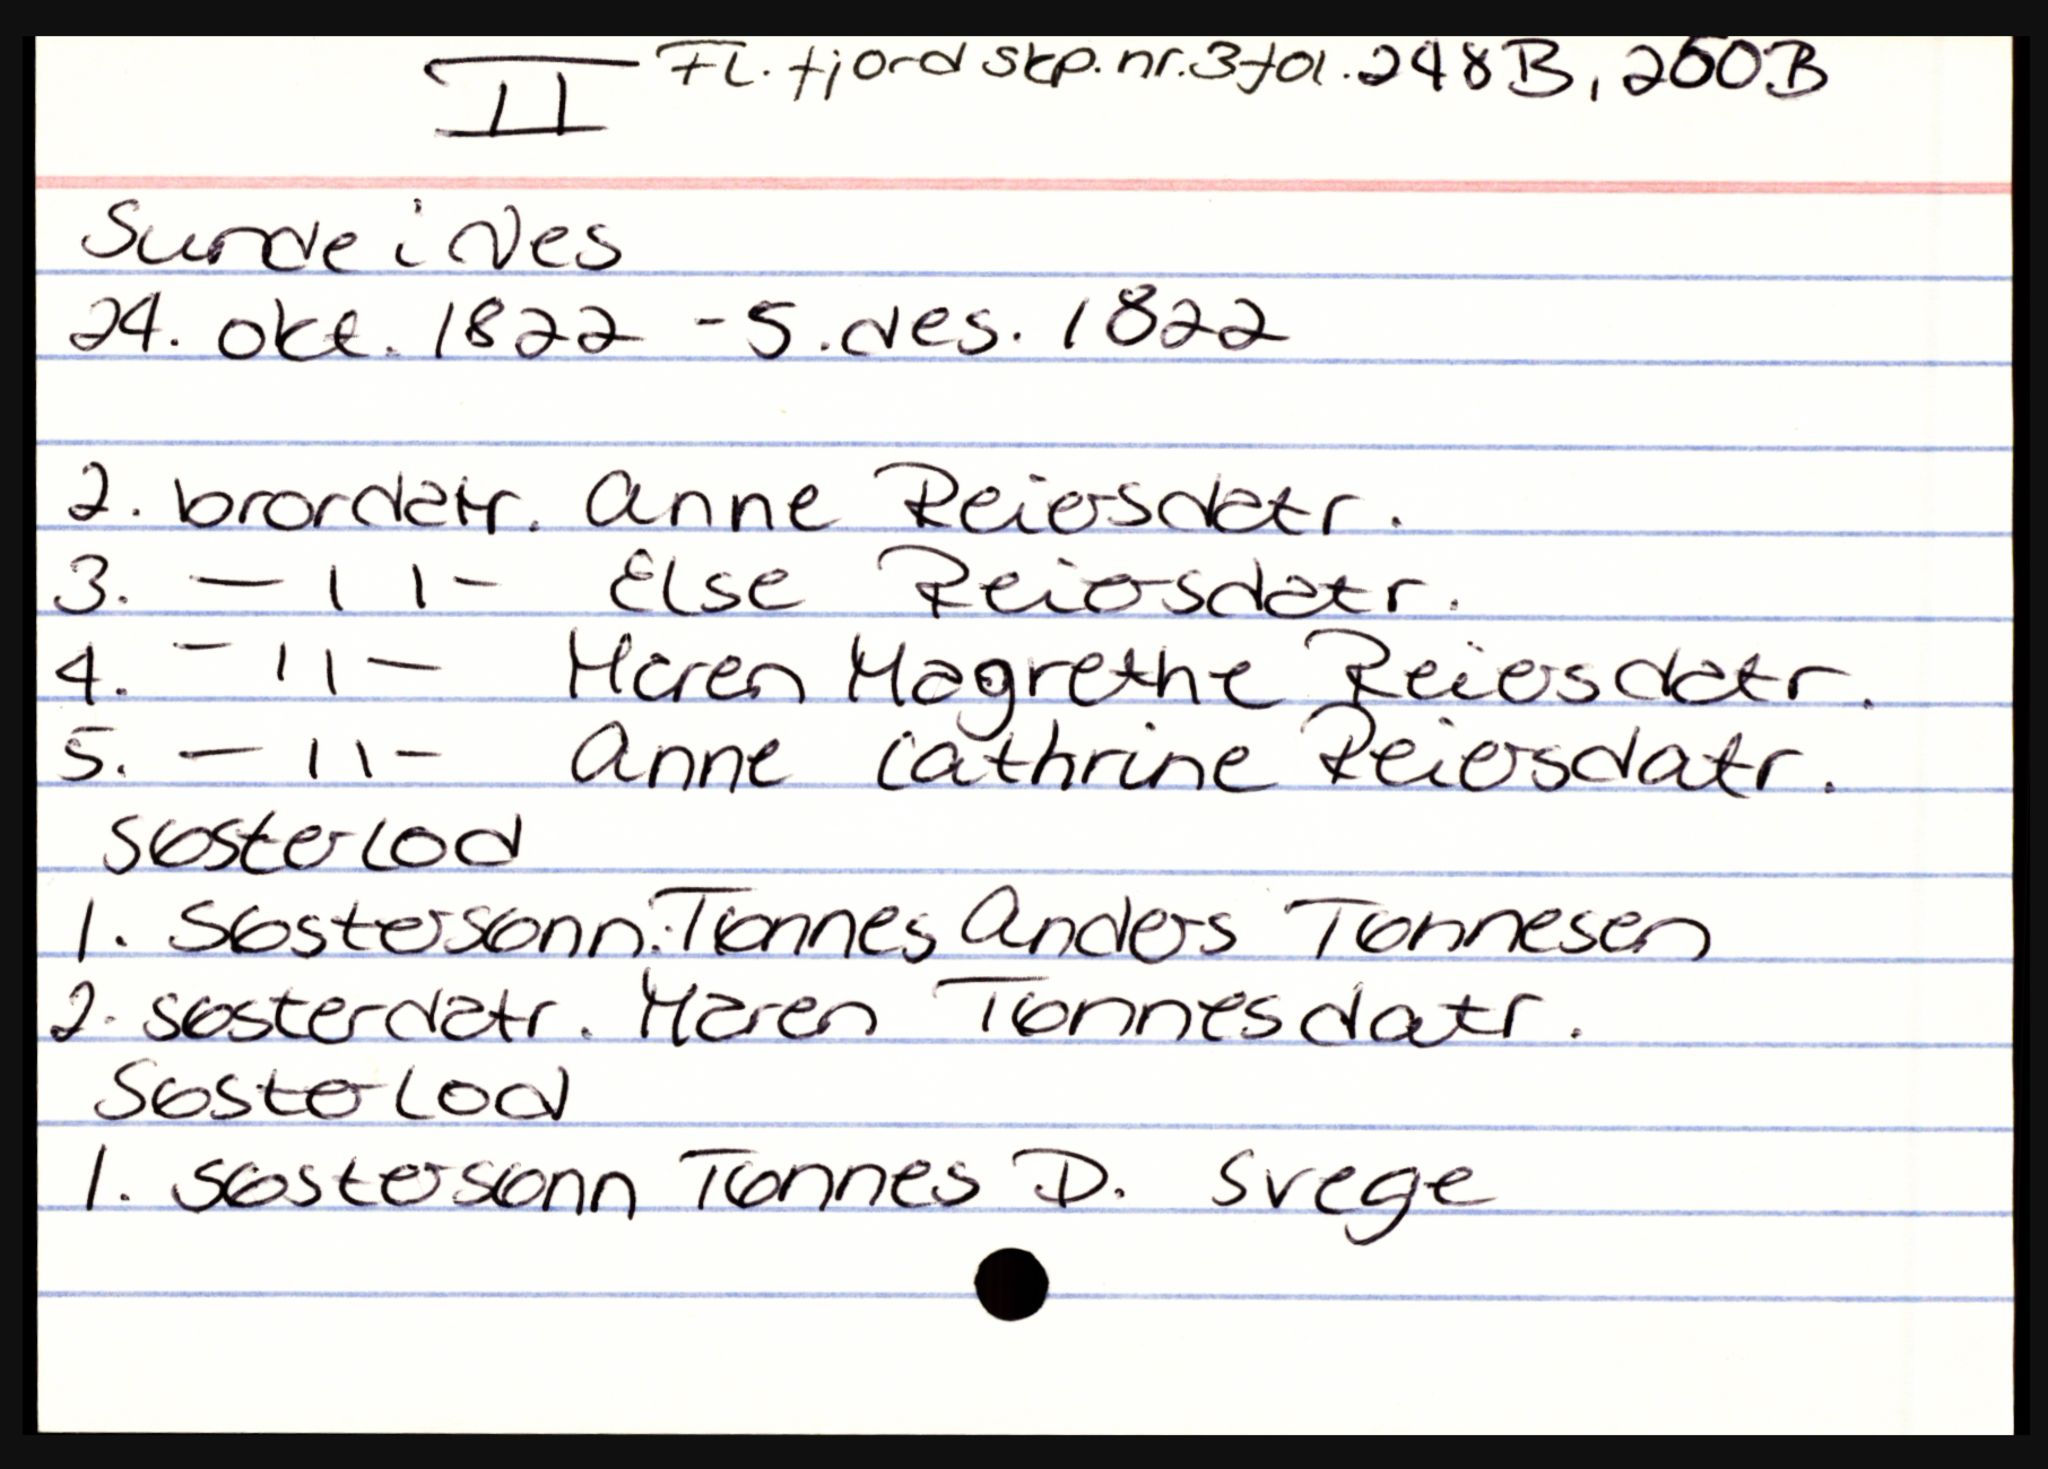 II Fl.fjord skp.nr.3 fol.248B, 250B
Sunde i Nes
24. okt. 1822 - 5. des. 1822
2. brordatr. Anne Reiersdatr.
3. -11- Else Reiersdatr.
4. -11- Maren Magrethe Reiersdatr.
5. -11- Anne Cathrine Reiersdatr.
søsterlod
1. Søstersønn: Tønnes Anders Tønnesen
2. søsterdatr. Maren Tønnesdatr.
Søsterlod
1. søstersønn Tønnes D. Svege